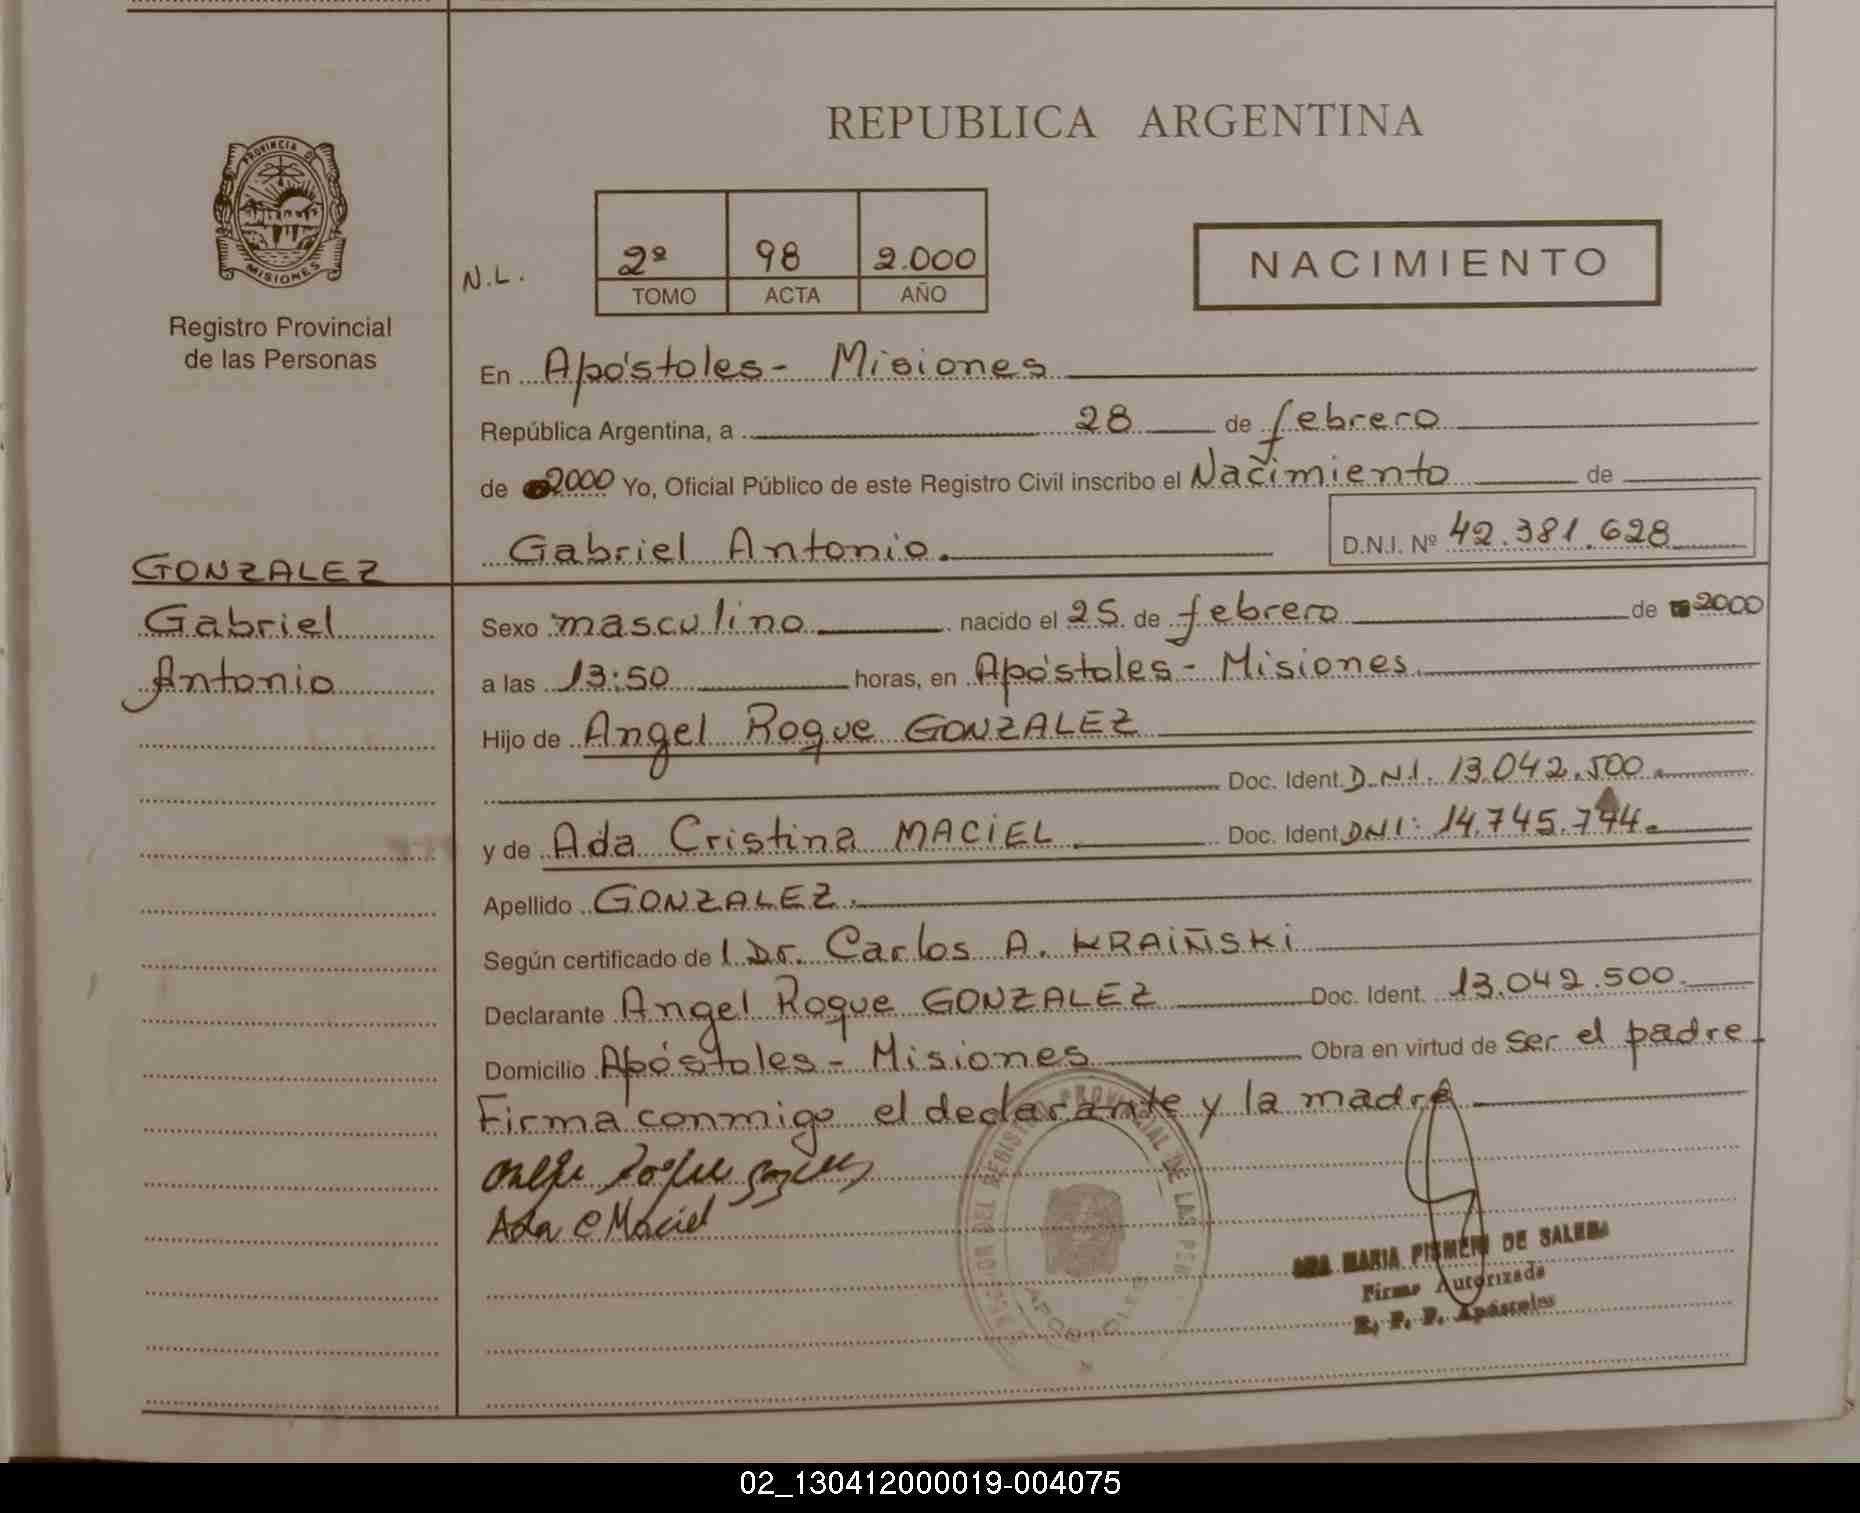 REPUBLICA ARGENTINA
PROVINCIA DE
MISIONES
Registro Provincial
de las Personas
N.L.
2º 98 2.000
TOMO ACTA AÑO
NACIMIENTO
En Apóstoles - Misiones
República Argentina, a 28 de febrero
de 2000 Yo, Oficial Público de este Registro Civil inscribo el Nacimiento de
Gabriel Antonio. D.N.I. Nº 42.381.628
GONZALEZ
Gabriel
Antonio
Sexo masculino nacido el 25 de febrero de 2000
a las 13:50 horas, en Apóstoles - Misiones.
Hijo de Angel Roque GONZALEZ
Doc. Ident. D.N.I. 13.042.500.
y de Ada Cristina MACIEL Doc. Ident. DNI: 14.745.744.
Apellido GONZALEZ.
Según certificado de l Dr. Carlos A. KRAIÑSKi
Declarante Angel Roque GONZALEZ Doc. Ident. 13.042.500.
Domicilio Apóstoles - Misiones Obra en virtud de ser el padre.
Firma conmigo el declarante y la madre
Ada C Maciel
REGISTRO PROVINCIAL DE LAS
MARIA DE
Firma Autorizada
R. P. P. Apóstoles
02_130412000019-004075